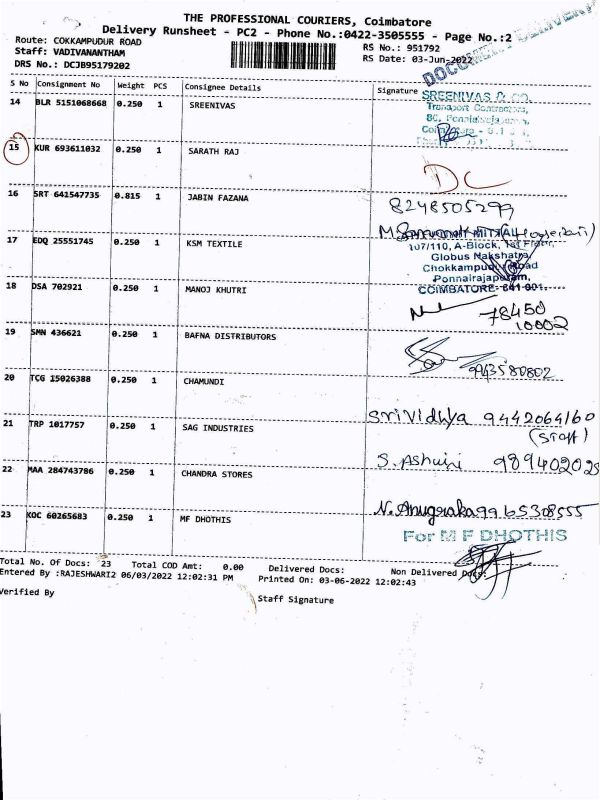 THE PROFESSIONAL COURIERS, Coimbatore
Delivery Runsheet - PC2 - Phone No.:0422-3505555 - Page No.:2
DOCUMENT DELIVERY
Route: COKKAMPUDUR ROAD
RS No.: 951792
Staff: VADIVANANTHAM
RS Date: 03-Jun-2022
DRS No.: DCJB95179202
S No Consignment No Weight PCS Consignee Details Signature
14 BLR 5151068668 0.250 1 SREENIVAS
SREENIVAS & CO.
Transport Contractors,
8C, Ponnaiahrajapuram,
15 KUR 693611032 0.250 1 SARATH RAJ
DC
16 SRT 641547735 0.815 1 JABIN FAZANA
8248505299
17 EDQ 25551745 0.250 1 KSM TEXTILE
107/110, A-Block, 1st Floor,
Globus Nakshatra,
Chokkampudur Road
Ponnairajapuram,
COIMBATORE-641 001.
18 DSA 702921 0.250 1 MANOJ KHUTRI
78450
10002
19 SMN 436621 0.250 1 BAFNA DISTRIBUTORS
9943580802
20 TCG 15026388 0.250 1 CHAMUNDI
Srividhya 9442064160
(Staff)
21 TRP 1017757 0.250 1 SAG INDUSTRIES
S. Ashwini
22 MAA 284743786 0.250 1 CHANDRA STORES
9965308555
23 KOC 60265683 0.250 1 MF DHOTHIS
For M F DHOTHIS
Total No. Of Docs: 23 Total COD Amt: 0.00 Delivered Docs: Non Delivered Docs:
Entered By :RAJESHWARI2 06/03/2022 12:02:31 PM Printed On: 03-06-2022 12:02:43
Verified By
Staff Signature